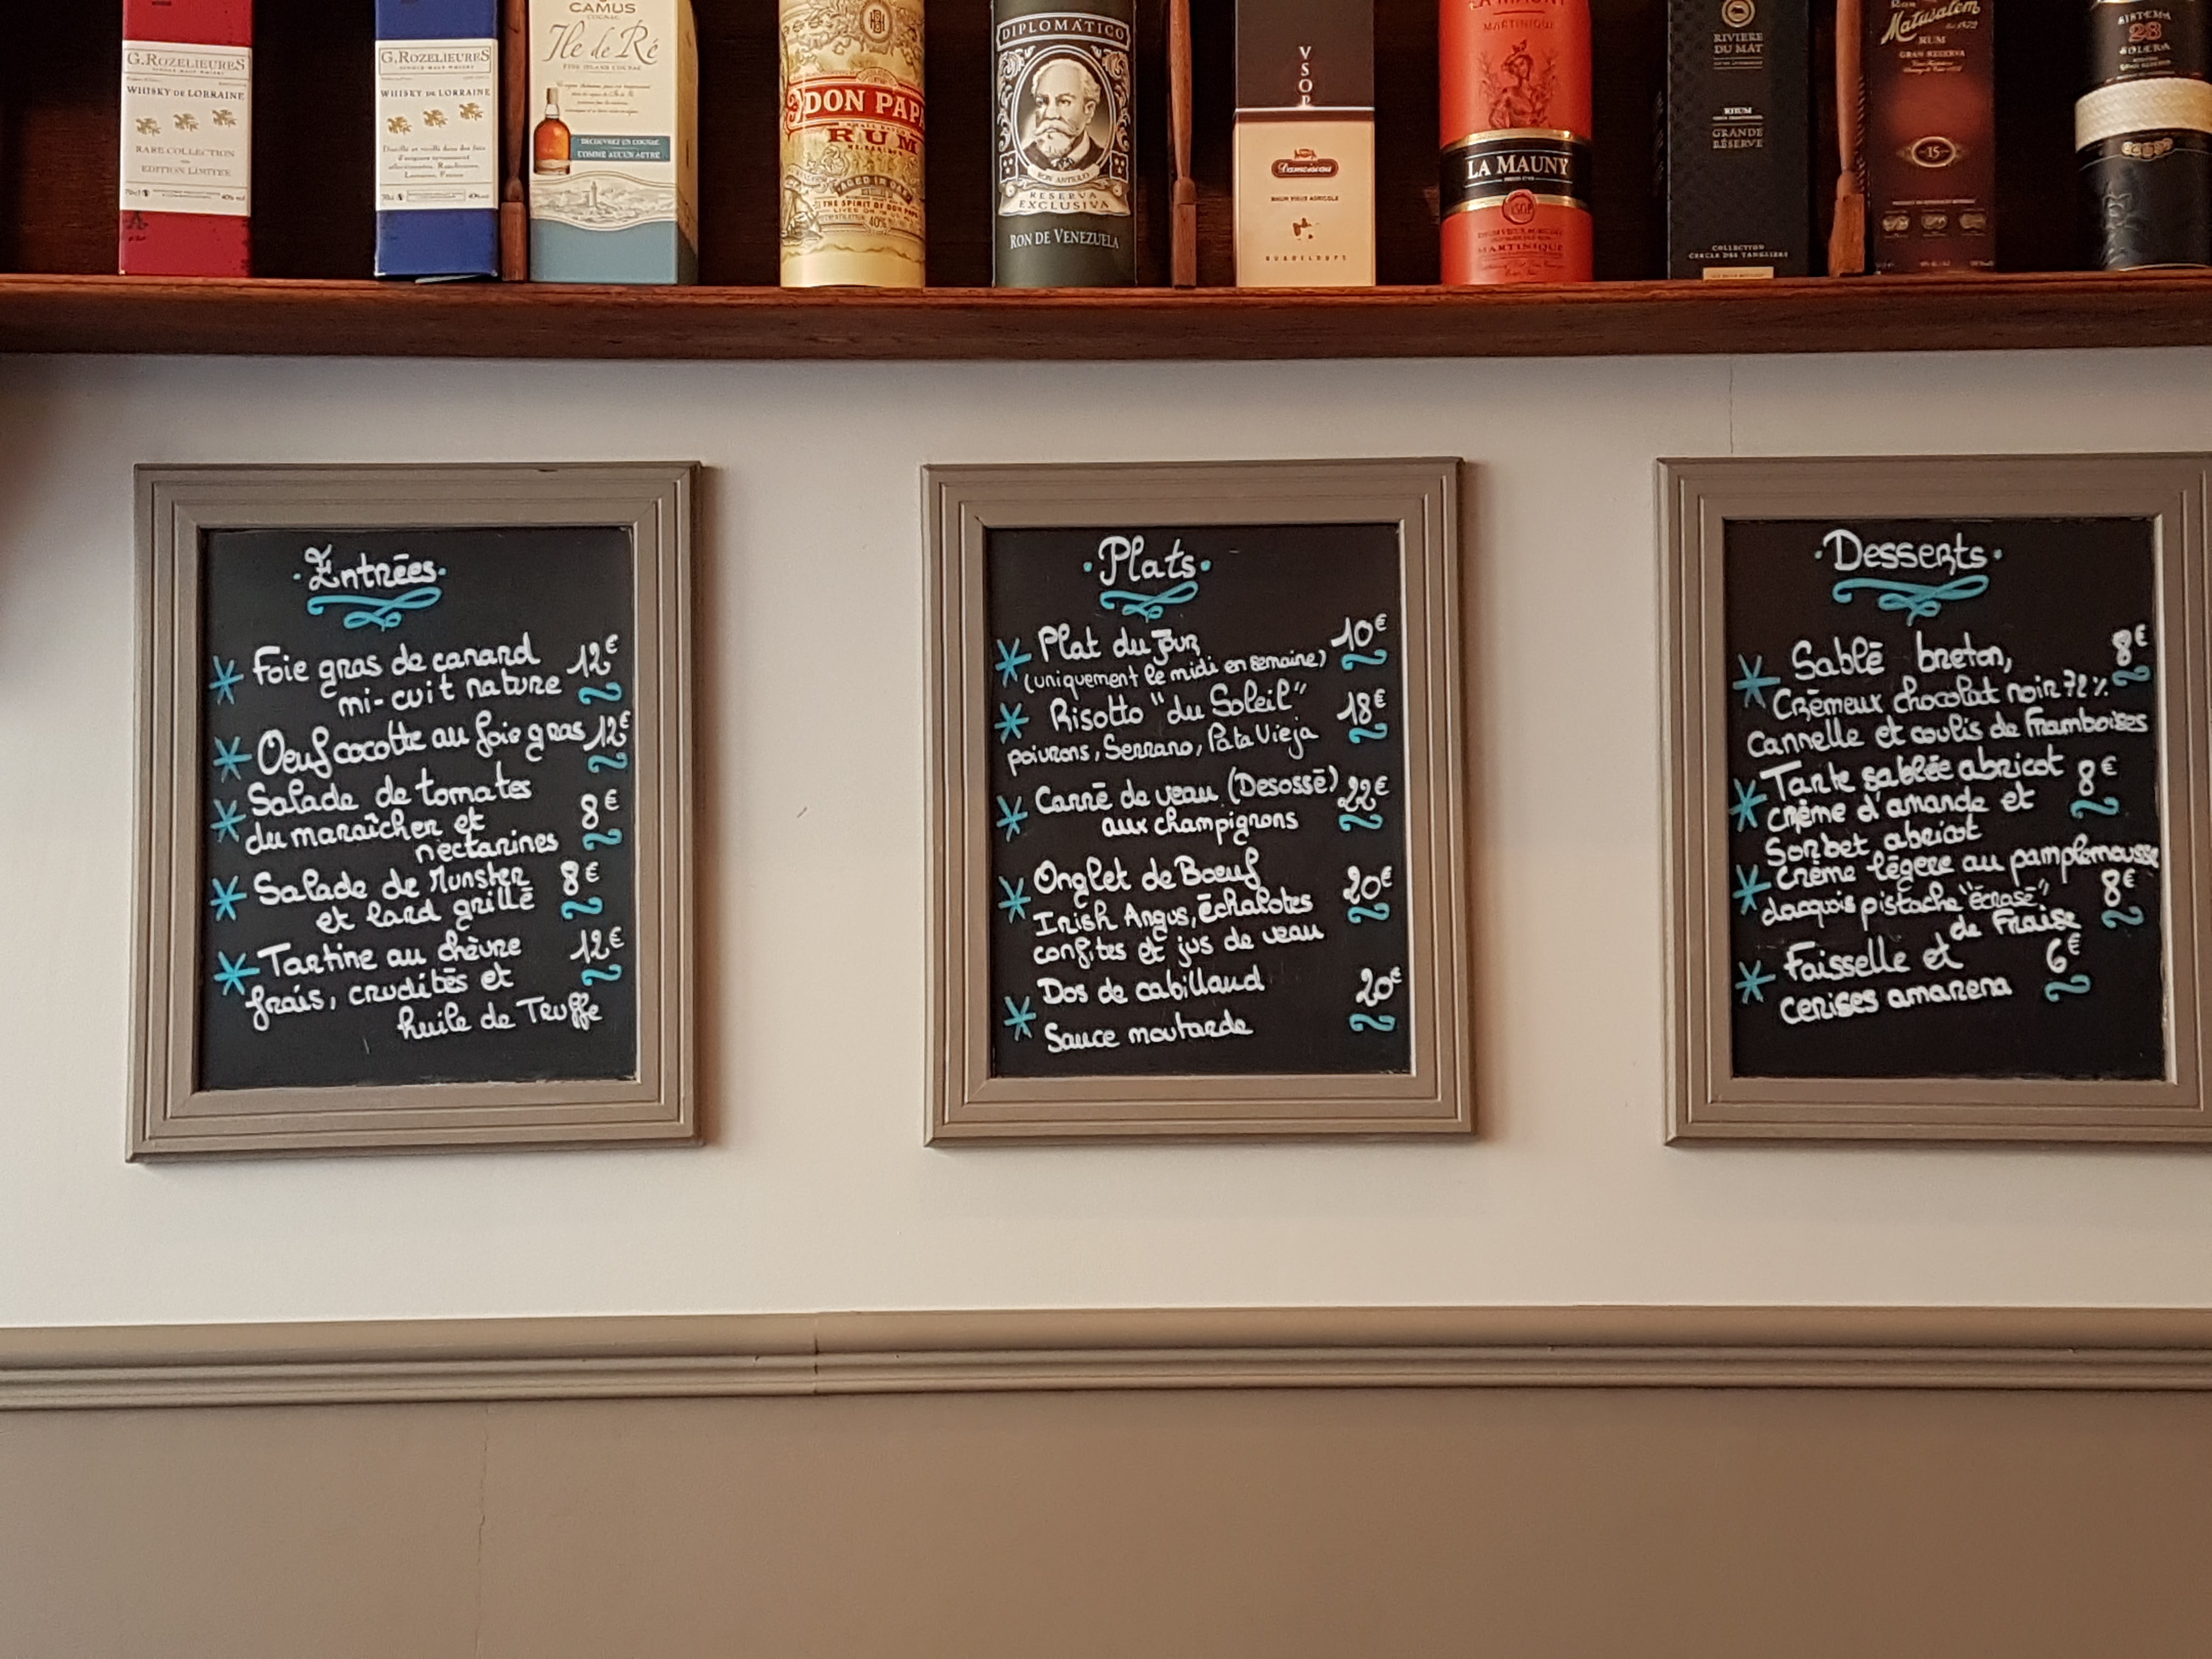 G.ROZELIEURES
SINGLE MALT WHISKY
WHISKY DE LORRAINE
RARE COLLECTION
EDITION LIMITÉE
G.ROZELIEURES
SINGLE MALT WHISKY
WHISKY DE LORRAINE
CAMUS
COGNAC
Ile de Ré
FINE ISLAND COGNAC
DÉCOUVREZ UN COGNAC
COMME AUCUN AUTRE
DON PAPA
RUM
AGED IN OAK
THE SPIRIT OF DON PAPA
40%
DIPLOMÁTICO
RON ANTIGUO
RESERVA
EXCLUSIVA
RON DE VENEZUELA
VSOP
Damoiseau
RHUM VIEUX AGRICOLE
GUADELOUPE
LA MAUNY
MARTINIQUE
LA MAUNY
VSOP
MARTINIQUE
RIVIERE
DU MAT
RHUM
GRANDE
RÉSERVE
COLLECTION
CERCLE DES TANGUIERS
Ron
Matusalem
RUM
GRAN RESERVA
15
SISTEMA
23
SOLERA
·Entrées·
* Foie gras de canard 12€
mi-cuit nature
* Oeuf cocotte au foie gras 12€
* Salade de tomates
du maraîcher et 8€
nectarines
* Salade de Munster 8€
et lard grillé
* Tartine au chèvre 12€
frais, crudités et
huile de Truffe
·Plats·
* Plat du jour 10€
(uniquement le midi en semaine)
* Risotto "du Soleil" 18€
poivrons, Serrano, Pata Vieja
* Carré de veau (Desossé) 22€
aux champignons
* Onglet de Boeuf 20€
Irish Angus, échalotes
confites et jus de veau
* Dos de cabillaud 20€
Sauce moutarde
·Desserts·
* Sablé breton, 8€
Crémeux chocolat noir 72%
Cannelle et coulis de framboises
* Tarte sablée abricot 8€
crème d'amande et
Sorbet abricot
* Crème légère au pamplemousse
dacquois pistache "écrasé" 8€
de Fraise
* Faisselle et 6€
cerises amarena